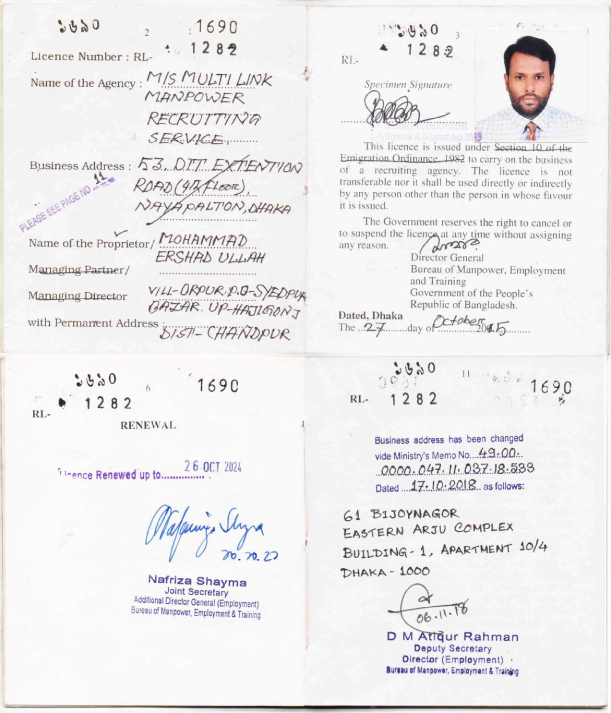 ১৬৯০
2
1690
1282
Licence Number : RL-
Name of the Agency : M/S MULTI LINK
MANPOWER
RECRUITING
SERVICE.
Business Address : 53, DIT EXTENTION
ROAD (9th Floor)
NAYAPALTON, DHAKA
PLEASE SEE PAGE NO 11
Name of the Proprietor/ MOHAMMAD
ERSHAD ULLAH
Managing Partner/
Managing Director VILL-ORPUR. P.O-SYEDPUR
BAZAR. UP-HAJIGONJ
with Permanent Address :
DIST- CHANDPUR
১৬৯০
3
1690
1282
RL-
Specimen Signature
This licence is issued under Section 10 of the
Emigration Ordinance, 1982 to carry on the business
of a recruiting agency. The licence is not
transferable nor it shall be used directly or indirectly
by any person other than the person in whose favour
it is issued.
The Government reserves the right to cancel or
to suspend the licence at any time without assigning
any reason.
Director General
Bureau of Manpower, Employment
and Training
Government of the People's
Republic of Bangladesh.
Dated, Dhaka
The 27 day of October 2015
১৬৯০
6
1690
RL- 1282
RENEWAL
Licence Renewed up to 26 OCT 2024
Nafriza Shayma
Joint Secretary
Additional Director General (Employment)
Bureau of Manpower, Employment & Training
১৬৯০
11
1690
RL- 1282
Business address has been changed
vide Ministry's Memo No. 49.00.
0000.047.11.037.18.538
Dated 17.10.2018 as follows:
61 BIJOYNAGOR
EASTERN ARJU COMPLEX
BUILDING - 1, APARTMENT 10/4
DHAKA - 1000
06.11.18
D M Atiqur Rahman
Deputy Secretary
Director (Employment)
Bureau of Manpower, Employment & Training